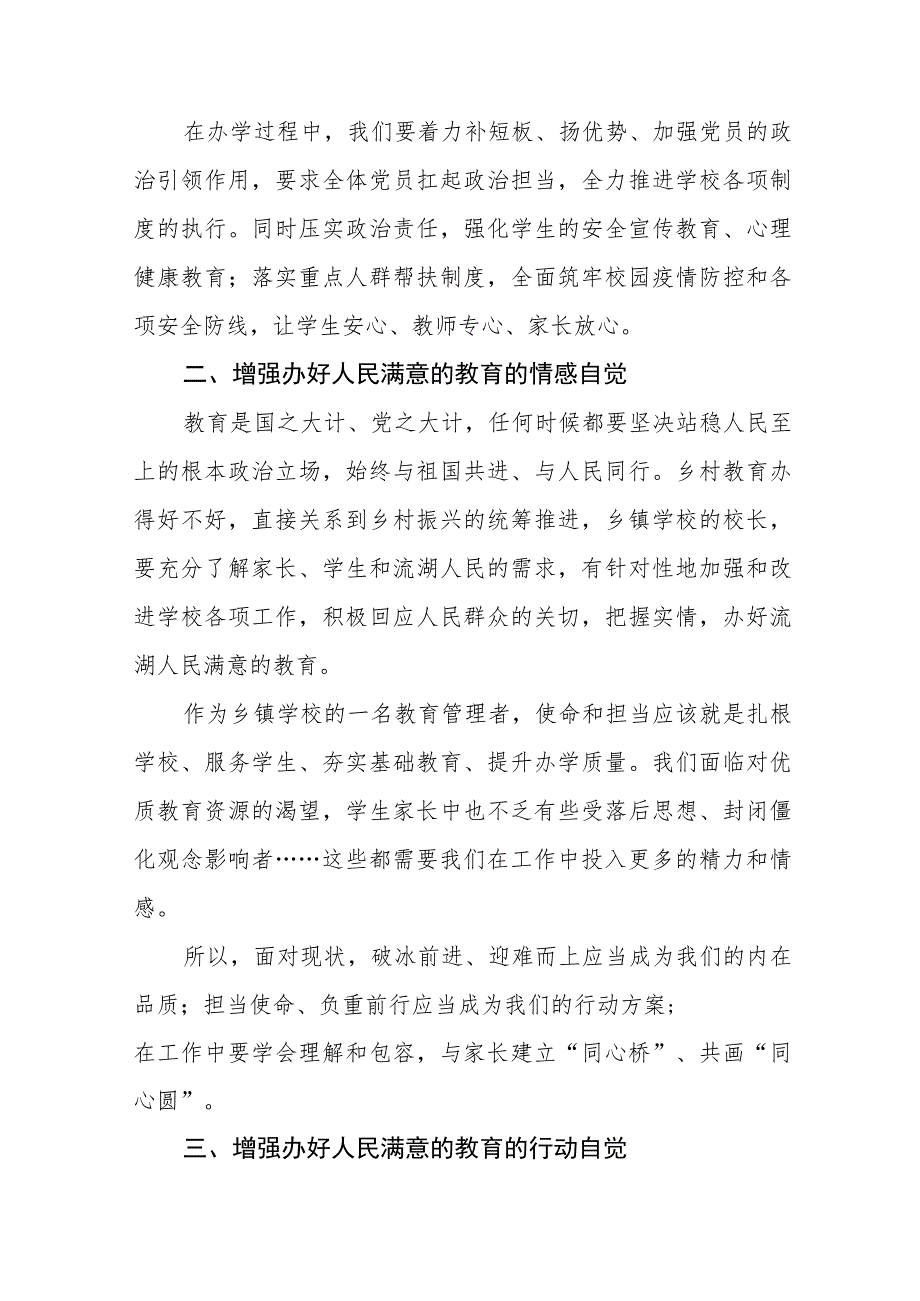 在办学过程中，我们要着力补短板、扬优势、加强党员的政
治引领作用，要求全体党员扛起政治担当，全力推进学校各项制
度的执行。同时压实政治责任，强化学生的安全宣传教育、心理
健康教育；落实重点人群帮扶制度，全面筑牢校园疫情防控和各
项安全防线，让学生安心、教师专心、家长放心。
二、增强办好人民满意的教育的情感自觉
教育是国之大计、党之大计，任何时候都要坚决站稳人民至
上的根本政治立场，始终与祖国共进、与人民同行。乡村教育办
得好不好，直接关系到乡村振兴的统筹推进，乡镇学校的校长，
要充分了解家长、学生和流湖人民的需求，有针对性地加强和改
进学校各项工作，积极回应人民群众的关切，把握实情，办好流
湖人民满意的教育。
作为乡镇学校的一名教育管理者，使命和担当应该就是扎根
学校、服务学生、夯实基础教育、提升办学质量。我们面临对优
质教育资源的渴望，学生家长中也不乏有些受落后思想、封闭僵
化观念影响者……这些都需要我们在工作中投入更多的精力和情
感。
所以，面对现状，破冰前进、迎难而上应当成为我们的内在
品质；担当使命、负重前行应当成为我们的行动方案;
在工作中要学会理解和包容，与家长建立“同心桥”、共画“同
心圆”。
三、增强办好人民满意的教育的行动自觉